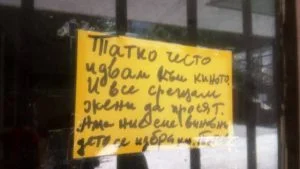 Татко често
идвам към киното.
И все срещам
жени да просят.
Ама ние сме виновни
дето се избрахи.